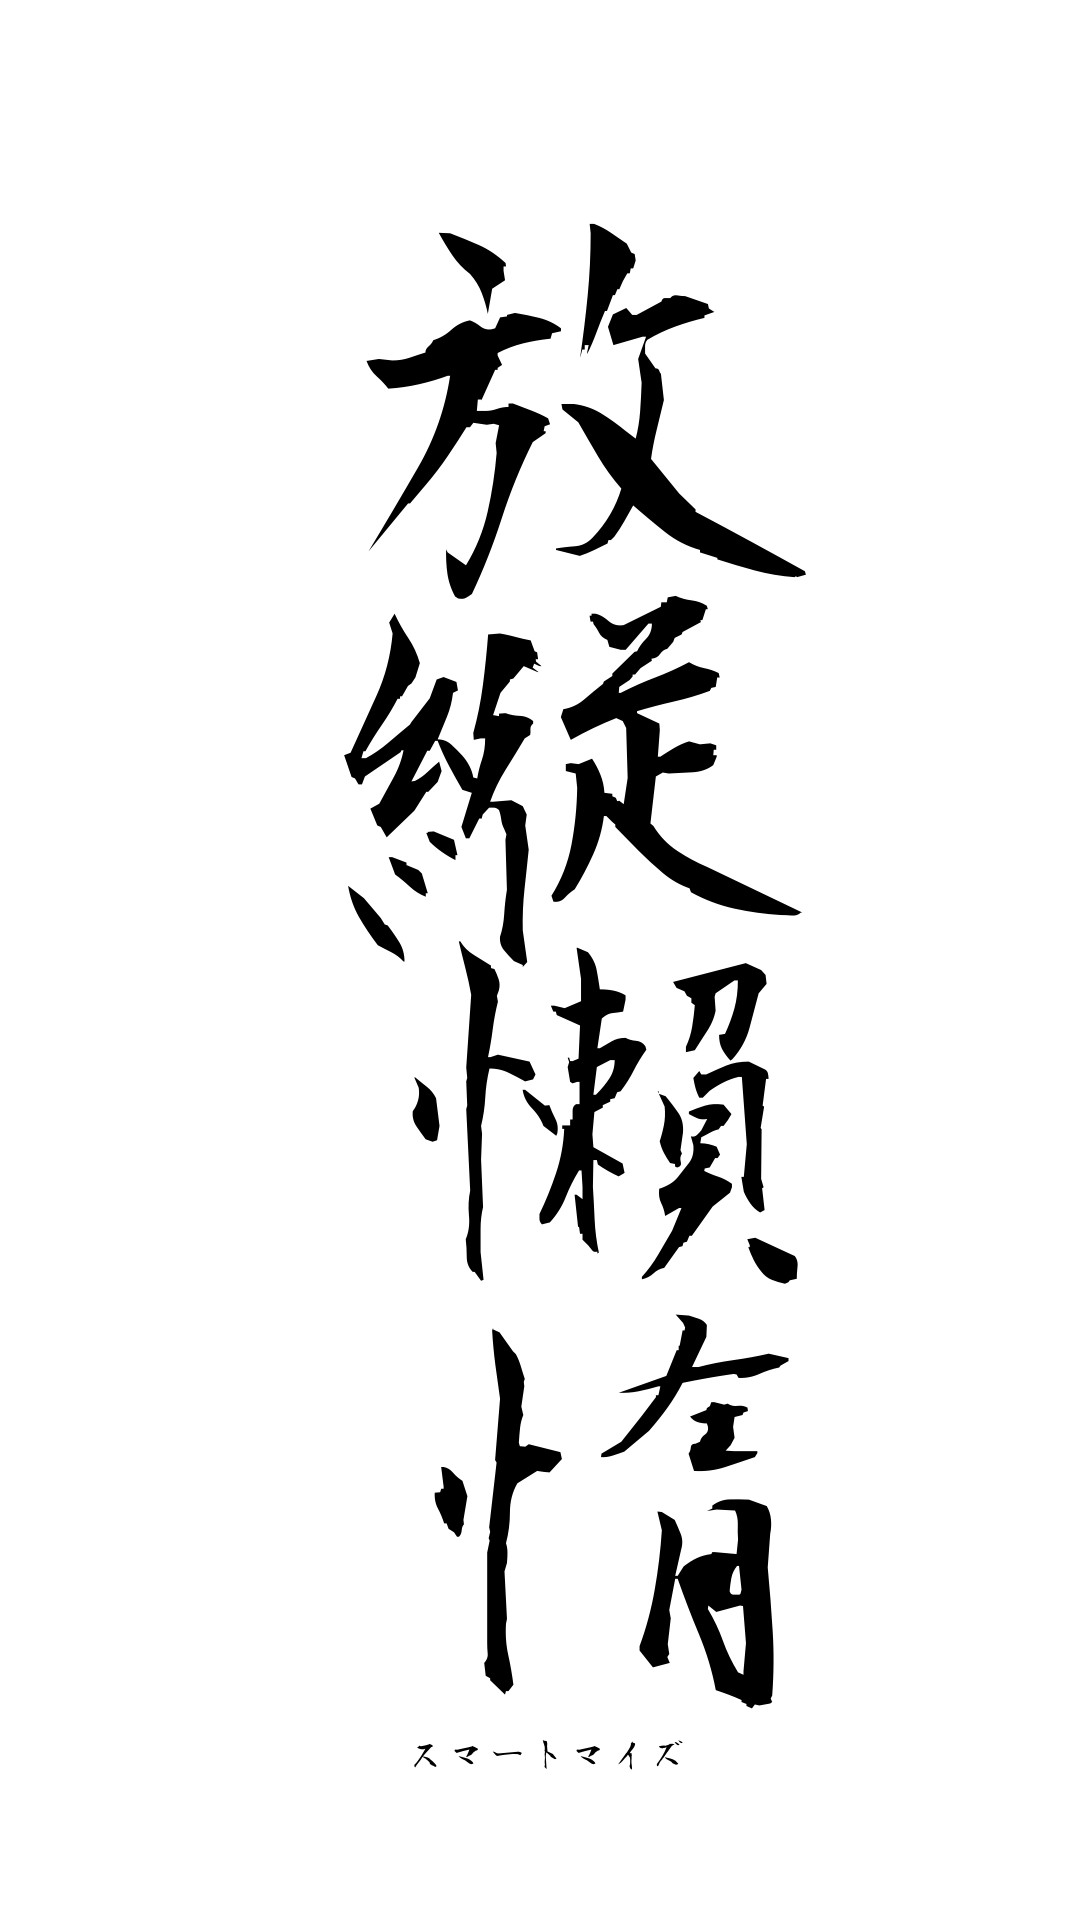 放縦懶惰
スマートマイズ